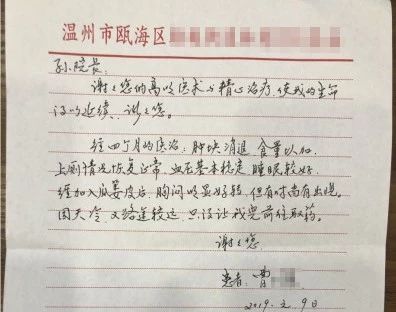 温州市瓯海区
孙院长:
谢谢您的高明医术与精心治疗,使我的生命
得以延续,谢谢您。
经四个月的医治:肿块消退 食量以加,
上厕情况恢复正常,血压基本稳定 睡眠较好,
经加入瓜蒌皮后,胸闷明显好转,但有时尚有出现。
因天冷 又路途较远,只没让我儿前往取药。
谢谢您
患者:曹
2019.2.9日